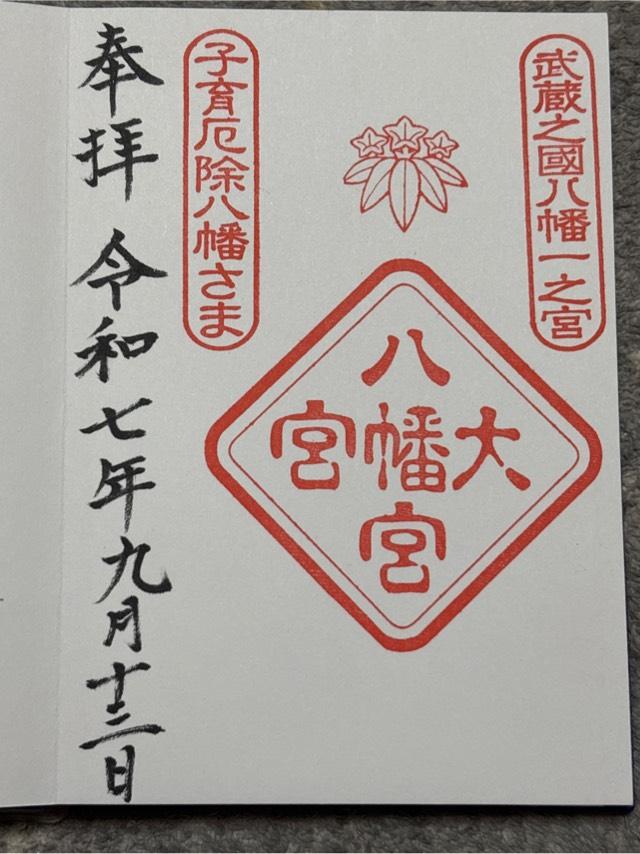 武蔵之國八幡一之宮
大宮
八幡宮
子育厄除八幡さま
奉拝 令和七年九月十三日